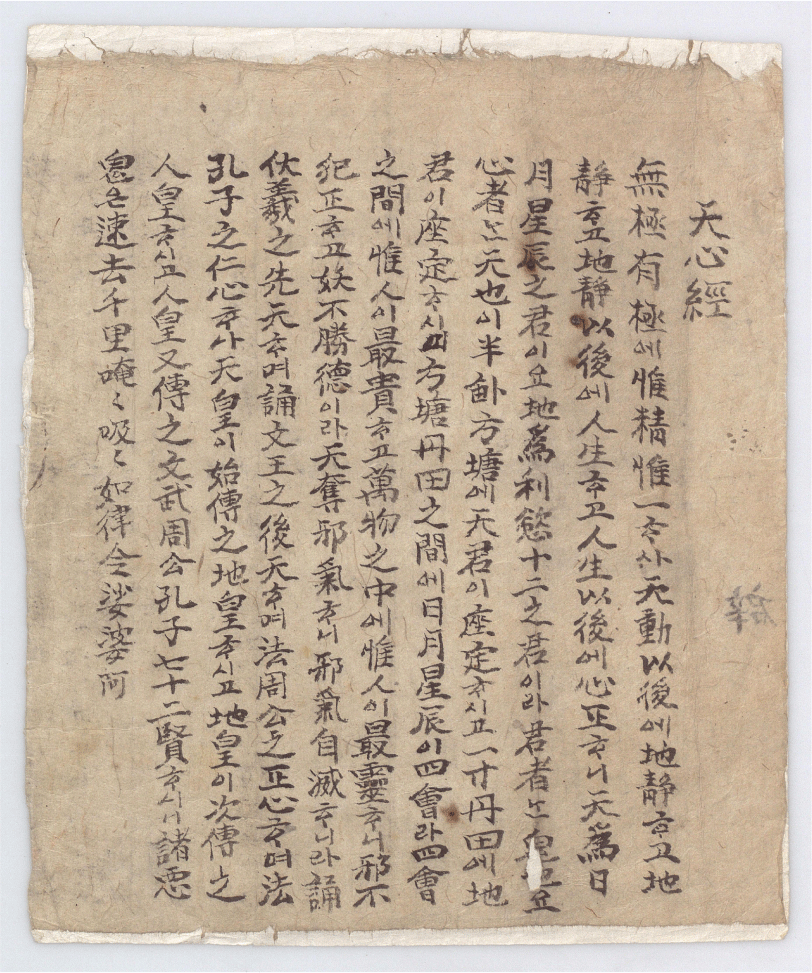 天心經
無極有極에惟精惟一ᄒᆞ사天動以後에地靜ᄒᆞ고地
靜ᄒᆞ고地靜以後에人生ᄒᆞ고人生以後에心正ᄒᆞ니天爲日
月星辰之君이요地爲利慾十二之君이라君者는
心者는天也이半畝方塘에天君이座定ᄒᆞ시고一寸丹田에地
君이座定ᄒᆞ시며方塘丹田之間에日月星辰이四會라四會
之間에惟人이最貴ᄒᆞ고萬物之中에惟人이最靈ᄒᆞ니邪不
犯正ᄒᆞ고妖不勝德이라天奪邪氣ᄒᆞ니邪氣自滅ᄒᆞ니라誦
伏羲之先天ᄒᆞ며誦文王之後天ᄒᆞ며法周公之正心ᄒᆞ며法
孔子之仁心ᄒᆞ사天皇이始傳之地皇ᄒᆞ시고地皇이次傳之
人皇ᄒᆞ시고人皇又傳之文武周公孔子七十二賢ᄒᆞ시니諸惡
鬼는速去千里唵〻吸〻如律令娑婆阿